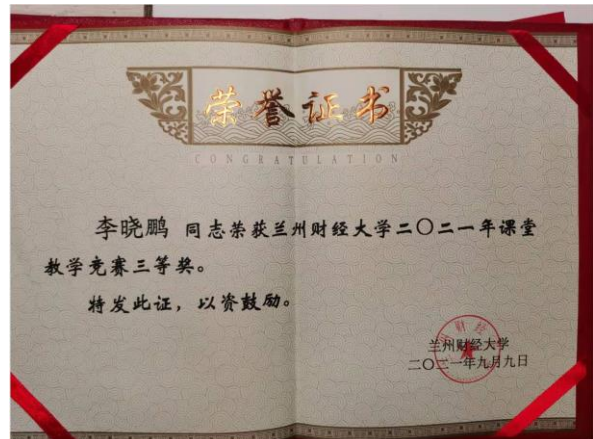 荣誉证书
CONGRATULATION
李晓鹏 同志荣获兰州财经大学二〇二一年课堂
教学竞赛三等奖。
特发此证，以资鼓励。
兰州财经大学
二〇二一年九月九日